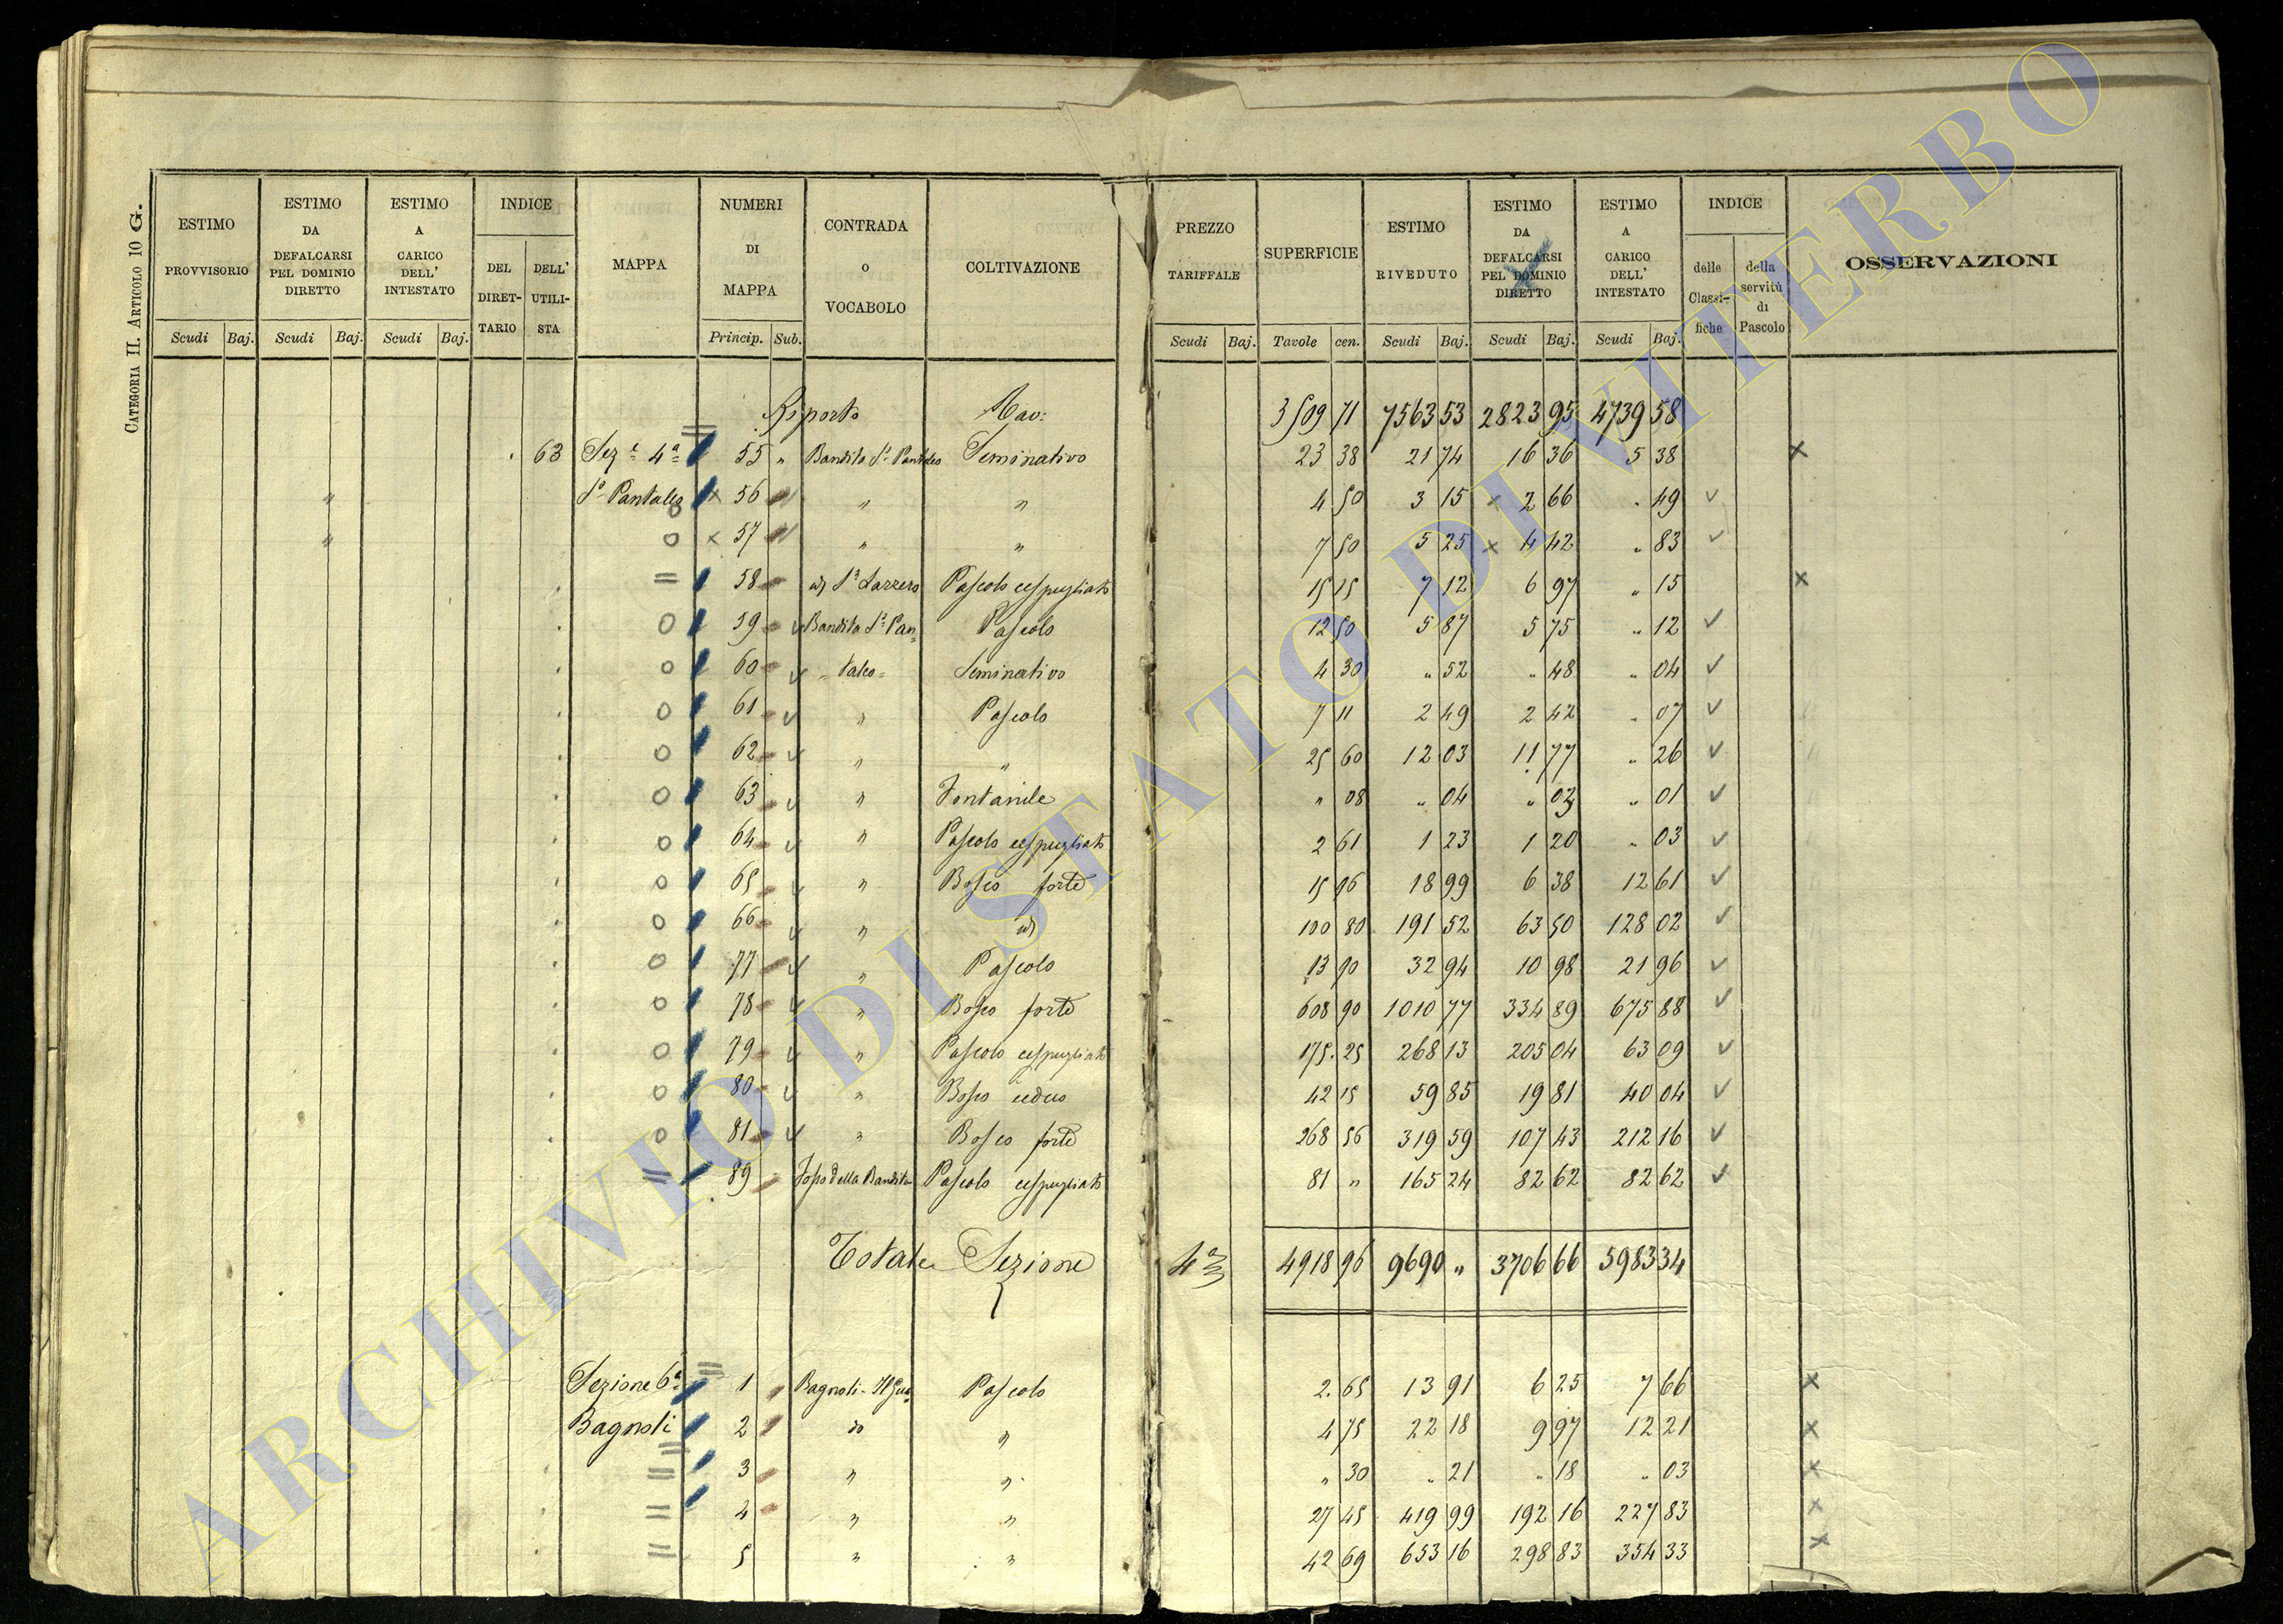 CATEGORIA II. ARTICOLO 10 G.
ESTIMO PROVVISORIO | ESTIMO DA DEFALCARSI PEL DOMINIO DIRETTO | ESTIMO A CARICO DELL' INTESTATO | INDICE DEL DIRETTARIO | DELL' UTILISTA | MAPPA | NUMERI DI MAPPA | CONTRADA o VOCABOLO | COLTIVAZIONE | PREZZO TARIFFALE | SUPERFICIE | ESTIMO RIVEDUTO | ESTIMO DA DEFALCARSI PEL DOMINIO DIRETTO | ESTIMO A CARICO DELL' INTESTATO | INDICE delle Classifiche | della servitù di Pascolo | OSSERVAZIONI
Scudi Baj. Scudi Baj. Scudi Baj. Princip. Sub. Scudi Baj. Tavole cen. Scudi Baj. Scudi Baj. Scudi Baj.
Riporto 3509 71 7563 53 2823 95 4739 58
63 Sez.e 4a 55 " Bandita S. Pantaleo Seminativo 23 38 21 74 16 36 5 38 x
" S. Pantaleo x 56 " " " 4 50 3 15 x 2 66 " 49
" x 57 " " " 7 50 5 25 x 4 42 " 83
58 S. Lazzero Pascolo cespugliato 15 15 7 12 6 97 " 15 x
59 Bandita S. Pan= Pascolo 12 50 5 87 5 75 " 12
60 =taleo= Seminativo 4 30 " 52 " 48 " 04
61 " Pascolo 7 11 2 49 2 42 " 07
62 " " 25 60 12 03 11 77 " 26
63 " Fontanile " 08 " 04 " 03 " 01
64 " Pascolo cespugliato 2 61 1 23 1 20 " 03
65 " Bosco forte 15 96 18 99 6 38 12 61
66 " id 100 80 191 52 63 50 128 02
77 " Pascolo 13 90 32 94 10 98 21 96
78 " Bosco forte 608 90 1010 77 334 89 675 88
79 " Pascolo cespugliato 175 25 268 13 205 04 63 09
80 " Bosco ceduo 42 15 59 85 19 81 40 04
81 " Bosco forte 268 56 319 59 107 43 212 16
89 Fosso della Bandita Pascolo cespugliato 81 " 165 24 82 62 82 62
Totale Sezione 4a 4918 96 9690 " 3706 66 5983 34
Sezione 6a 1 Bagnoli Pascolo 2 65 13 91 6 25 7 66 x
Bagnoli 2 do " 4 75 22 18 9 97 12 21 x
3 " " " 30 " 21 " 18 " 03 x
4 " " 27 45 419 99 192 16 227 83 x
5 " " 42 69 653 16 298 83 354 33 x
ARCHIVIO DI STATO DI VITERBO